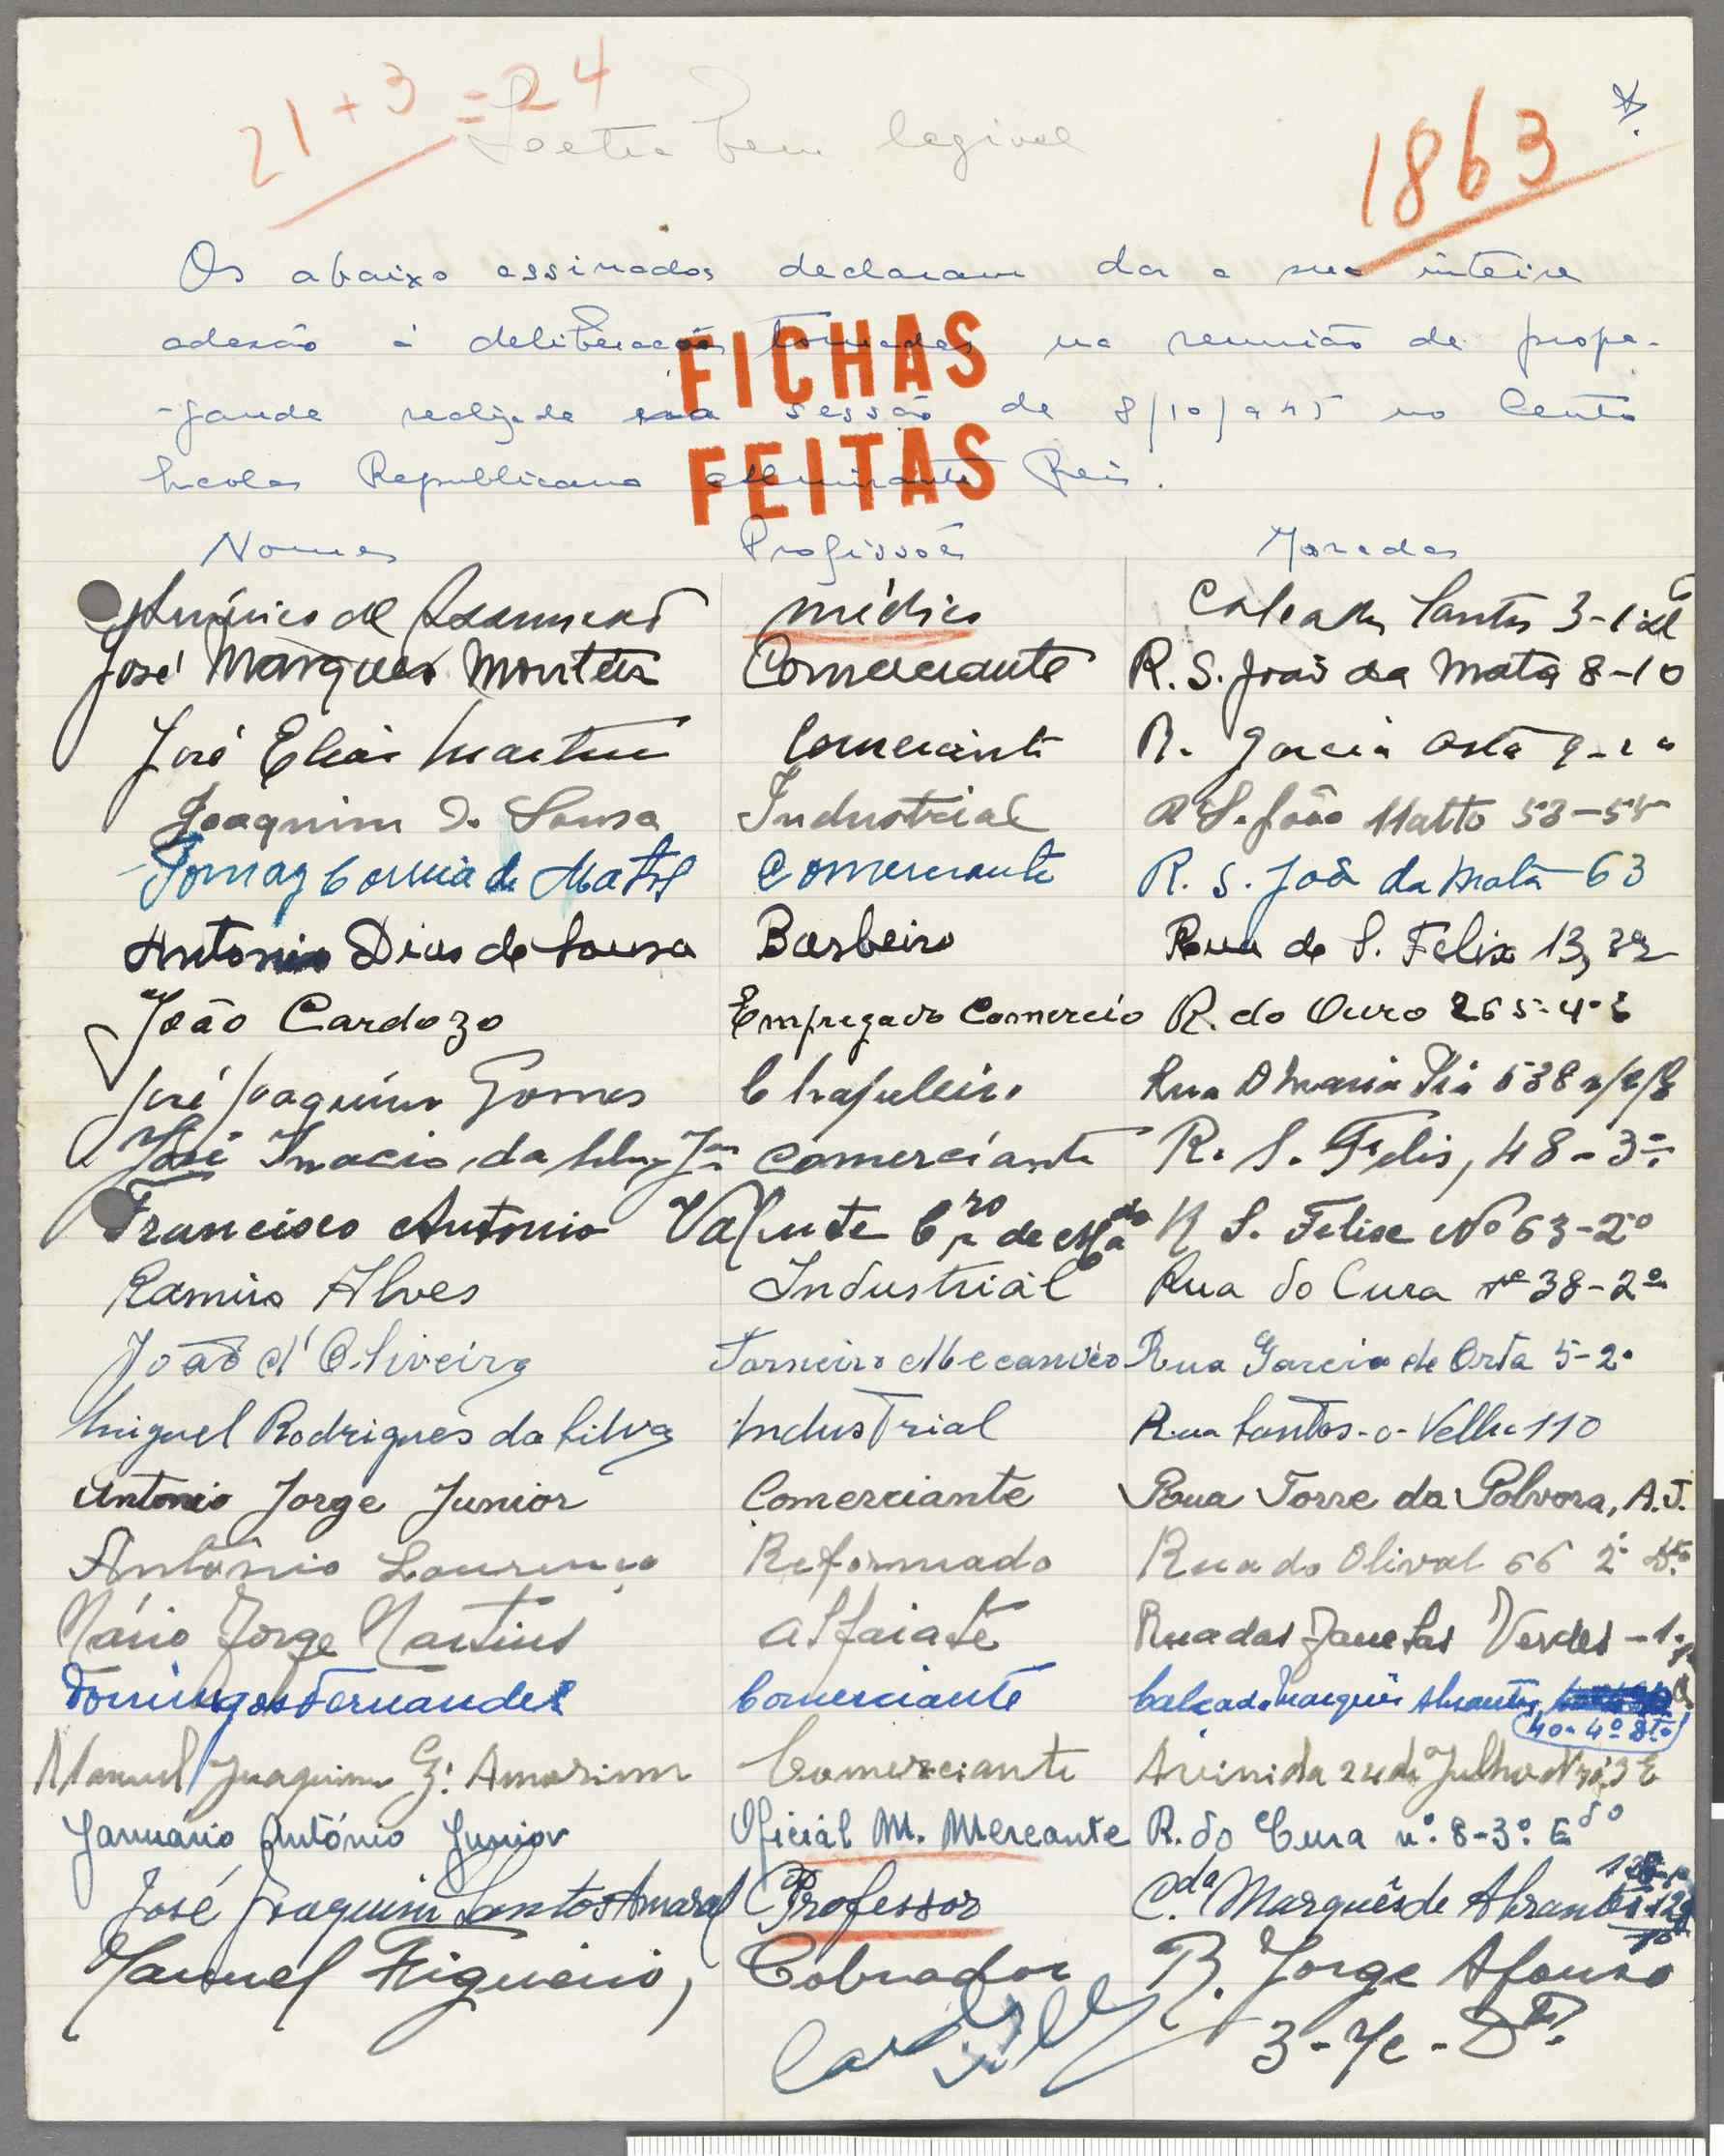 21 + 3 = 24
1863
Leetra bem legivel
Os abaixo assinados declaram dar a sua inteira
adesão á deliberação tomadas na reunião de propa-
-ganda realizada sessão de 8/10/945 no Centro
Escolar Republicano Almirante Reis.
FICHAS
FEITAS
Nomes Profissões Moradas
médico Santos 3-1
José Marques Monteiro Comerciante R. S. João da Mata 8-10
José Elias Martins Comerciante R. Garcia Orta 9-
Joaquim D. Sousa Industrial R S. João Matto 53-55
Tomaz Correia de Matos Comerciante R. S. João da Mata 63
Antonio Dias de Sousa Barbeiro Rua de S. Felix 13,
João Cardozo Empregado Comercio R. do Ouro 265-4º
José Joaquim Gomes Chapeleiro Rua D Maria Pia 538
José Inacio da Comerciante R. S. Felis, 48-3º
Francisco Antonio Valente R S. Felix Nº 63-2º
Ramiro Alves Industrial Rua do Cura nº 38-2º
João d'Oliveira Torneiro Mecanico Rua Garcia de Orta 5-2º
Miguel Rodrigues da Silva Industrial Rua Santos-o-Velho 110
Antonio Jorge Junior Comerciante Rua Torre da Polvora, A.J.
António Lourenço Reformado Rua do Olival 66 2º Dto
Mário Jorge Martins Alfaiate Rua das Janelas Verdes -1-
Domingos Fernandes Comerciante Calçada Marquês Abrantes
40-4º Dto
Manuel Joaquim G. Amorim Comerciante Avinida 24 de Julho
Januário António Junior Oficial M. Mercante R. do Cura nº. 8-3º. Edo
José Joaquim Santos Amaral Professor Cda Marquês de Abrantes
Manuel Figueirio, Cobrador R. Jorge Afonso